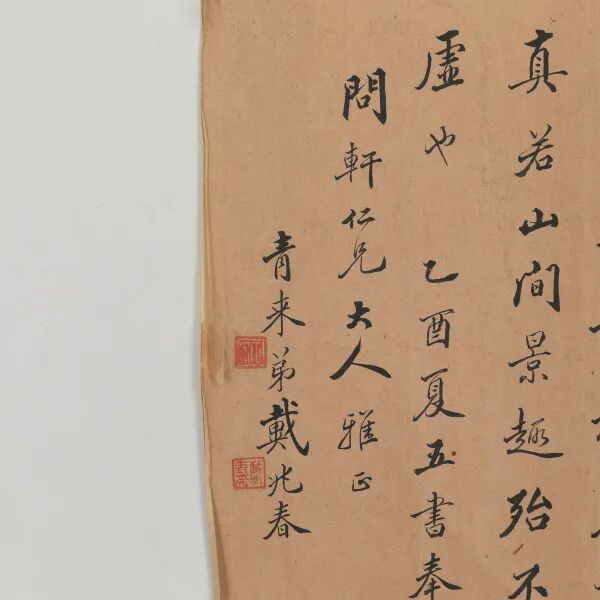 真若山間景趣殆不
虚也 乙酉夏五書奉
問軒仁兄大人雅正
青来弟戴兆春